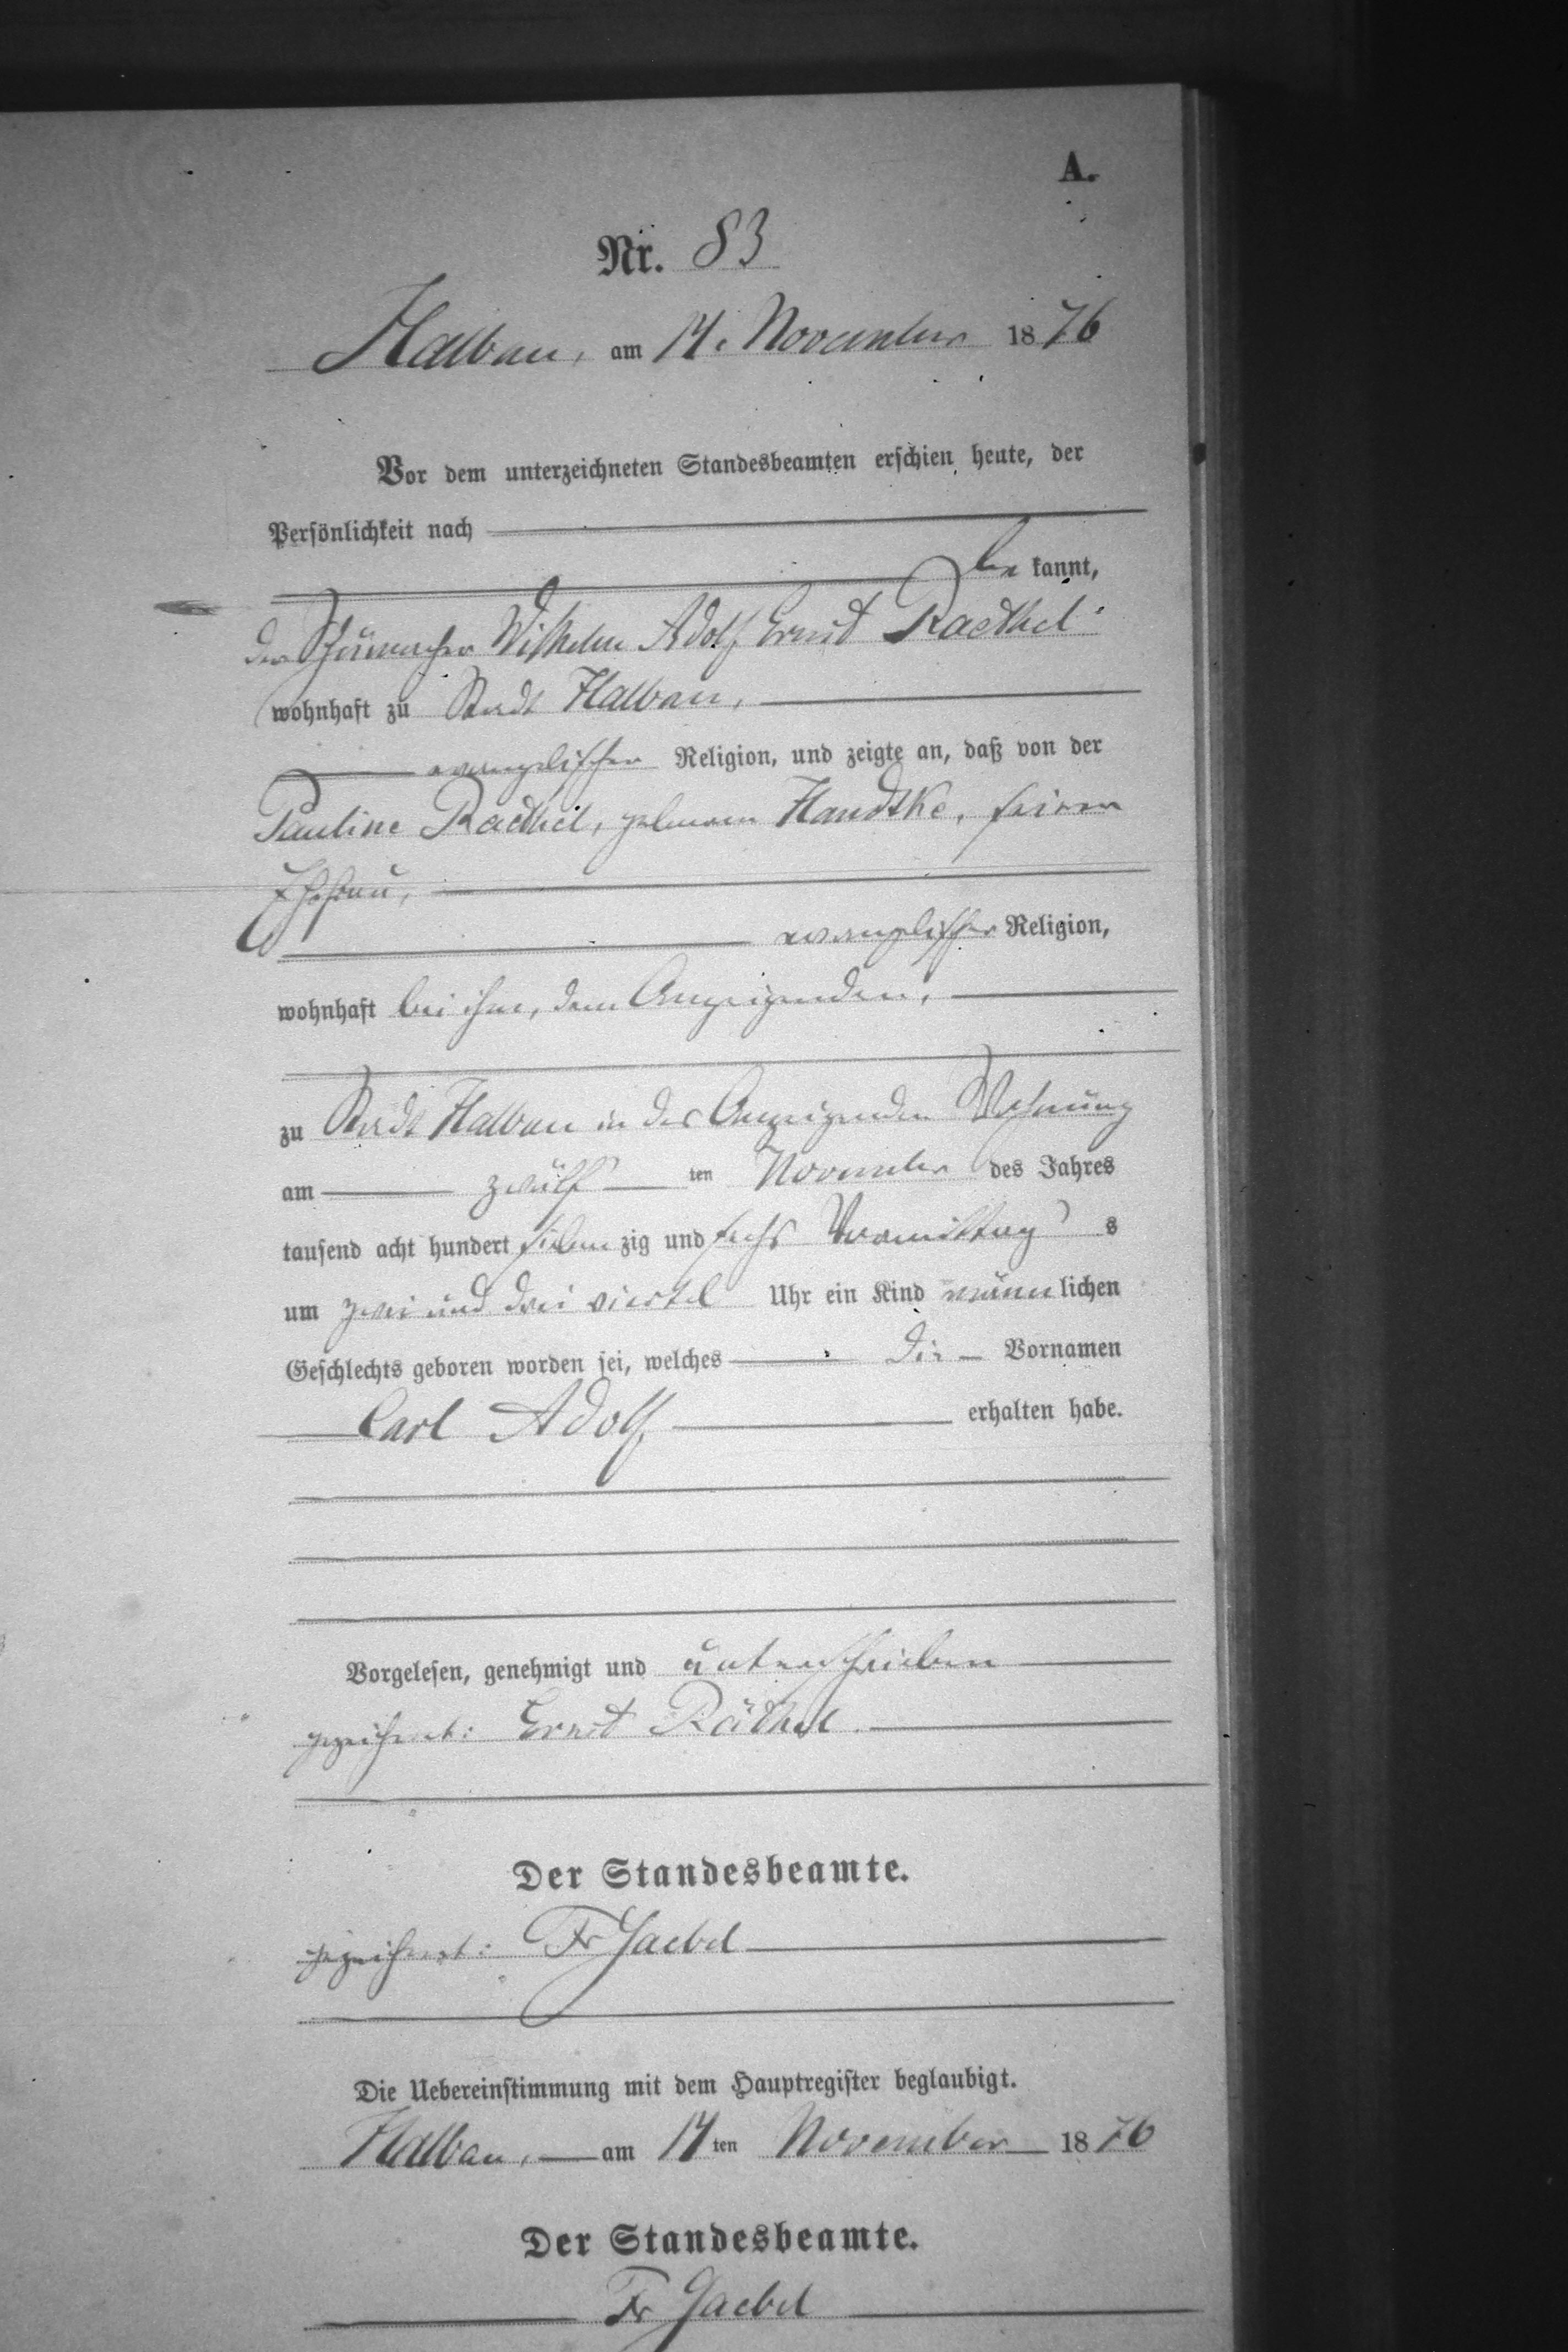 A.
Nr. 83
Halbau, am 14. November 1876
Vor dem unterzeichneten Standesbeamten erschien heute, der
Persönlichkeit nach
be kannt,
der Schumacher Wilhelm Adolf Ernst Raethel
wohnhaft zu Stadt Halbau,
evangelischer Religion, und zeigte an, daß von der
Pauline Raethel, geborenen Handtke, seiner
Ehefrau,
evangelischer Religion,
wohnhaft bei ihm, dem Anzeigenden,
zu Stadt Halbau in des Anzeigenden Wohnung
am zwölf ten November des Jahres
tausend acht hundert siebenzig und sechs Vormittag s
um zwei und drei viertel Uhr ein Kind männlichen
Geschlechts geboren worden sei, welches die Vornamen
Carl Adolf erhalten habe.
Vorgelesen, genehmigt und unterschrieben
gezeichnet: Ernst Räthel.
Der Standesbeamte.
gezeichnet: Fr Jaebel
Die Uebereinstimmung mit dem Hauptregister beglaubigt.
Halbau, am 14ten November 1876
Der Standesbeamte.
Fr Jaebel